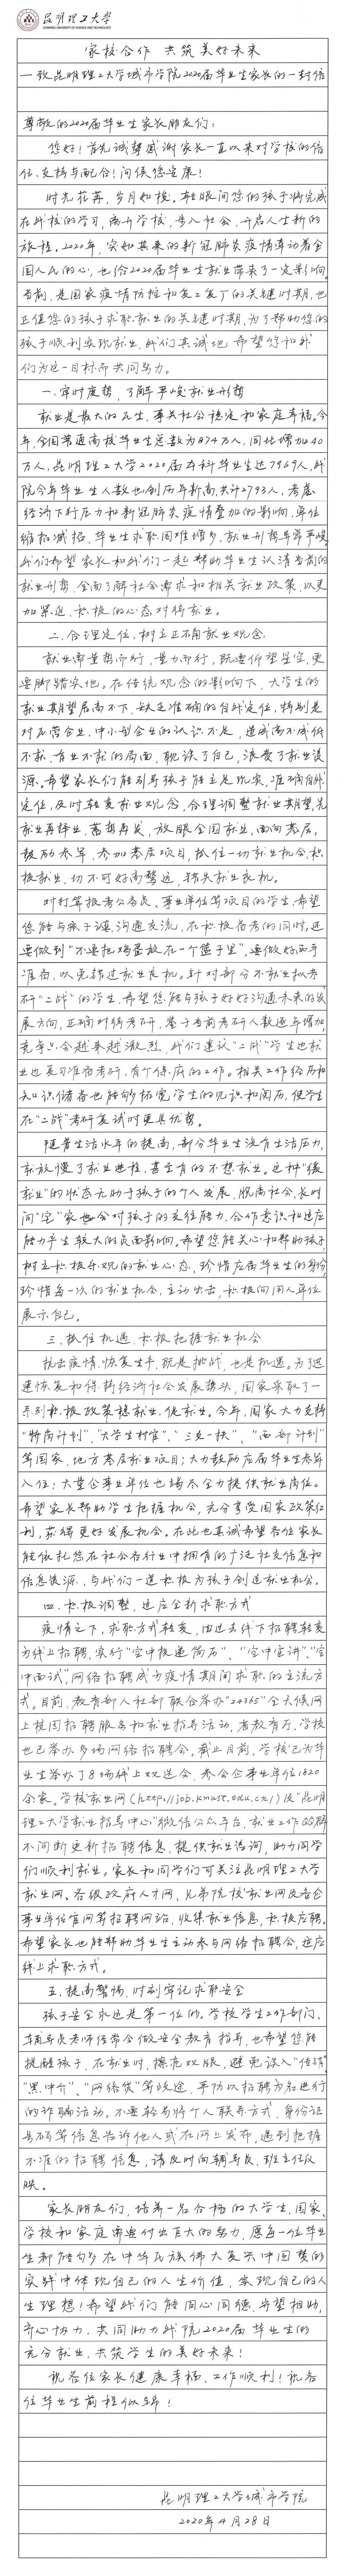 昆明理工大学
KUNMING UNIVERSITY OF SCIENCE AND TECHNOLOGY
家校合作 共筑美好未来
一致昆明理工大学城市学院2020届毕业生家长的一封信
尊敬的2020届毕业生家长朋友们：
您好！首先诚挚感谢家长一直以来对学校的信
任、支持与配合！问候您安康！
时光荏苒，岁月如梭。转眼间您的孩子将完成
在我校的学习，离开学校，步入社会，开启人生新的
旅程。2020年，突如其来的新冠肺炎疫情牵动着全
国人民的心，也给2020届毕业生就业带来了一定影响。
当前，是国家疫情防控和复工复产的关键时期，也
正值您的孩子求职就业的关键时期，为了帮助您的
孩子顺利实现就业，我们真诚地希望您和我
们为这一目标而共同努力。
一、审时度势，了解严峻就业形势
就业是最大的民生，事关社会稳定和家庭幸福。今
年，全国普通高校毕业生总数为874万人，同比增加40
万人，昆明理工大学2020届本科毕业生达7969人，我
院今年毕业生人数也创历年新高，共计2793人，考虑
经济下行压力和新冠肺炎疫情叠加的影响，单位
缩招减招，毕业生求职困难增多，就业形势异常严峻。
我们希望家长和我们一起帮助毕业生认清当前的
就业形势，全面了解社会需求和相关就业政策，以更
加紧迫、积极的心态对待就业。
二、合理定位，树立正确就业观念
就业需量势而行，量力而行，既要仰望星空，更
要脚踏实地。在传统观念的影响下，大学生的
就业期望居高不下，缺乏准确的自我定位，特别是
对民营企业、中小型企业的认识不足，造成高不成低
不就、有业不就的局面，耽误了自己，浪费了就业资
源。希望家长们能引导孩子能立足现实，准确自我
定位，及时转变就业观念，合理调整就业期望，先
就业再择业，蓄势再发，放眼全国就业，面向基层，
鼓励参军，参加基层项目，抓住一切就业机会，积
极就业，切不可好高骛远，错失就业良机。
对打算报考公务员、事业单位等项目的学生，希望
您能与孩子谨沟通交流，在积极备考的同时，还
要做到“不要把鸡蛋放在一个篮子里”，要做好两手
准备，以免错过就业良机。针对部分不就业拟考
研“二战”的学生，希望您能与孩子好好沟通未来的发
展方向，正确对待考研，鉴于当前考研人数逐年增加，
竞争只会越来越激烈，我们建议“二战”学生也就
业也复习准备考研，有个保底的工作。相关工作经历和
知识储备也能够拓宽学生的见识和阅历，使学生
在“二战”考研复试时更具优势。
随着生活水平的提高，部分毕业生没有生活压力，
就放慢了就业进程，甚至有的不想就业。这种“缓
就业”的状态无助于孩子的个人发展，脱离社会、长时
间“宅”家也会对孩子的交往能力、合作意识和适应
能力产生较大的负面影响。希望您能关心和帮助孩子，
树立积极乐观的就业心态，珍惜应届毕业生的身份，
珍惜每一次的就业机会，主动出击，积极向用人单位
展示自己。
三、抓住机遇，积极把握就业机会
抗击疫情，恢复生产，既是挑战，也是机遇。为了迅
速恢复和保持经济社会发展势头，国家采取了一
系列积极政策稳就业、促就业。今年，国家大力支持
“特岗计划”、“大学生村官”、“三支一扶”、“西部计划”
等国家、地方基层就业项目；大力鼓励应届毕业生参军
入伍；大量企事业单位也竭尽全力提供就业岗位。
希望家长帮助学生把握机会，充分享受国家政策红
利，获得更好发展机会。在此也真诚希望各位家长
能依托您在社会各行业中拥有的广泛社交信息和
信息资源，与我们一道积极为孩子创造就业机会。
四、积极调整，适应全新求职方式
疫情之下，求职方式转变，由过去线下招聘转变
为线上招聘，实行“空中投递简历”、“空中宣讲”、“空
中面试”，网络招聘成为疫情期间求职的主流方
式。目前，教育部、人社部联合举办“24365”全天候网
上校园招聘服务和就业指导活动，省教育厅、学校
也已举办多场网络招聘会。截止目前，学校已为毕
业生举办了8场线上双选会，参会企事业单位1820
余家。学校就业网（http://job.kmust.edu.cn/）及“昆明
理工大学就业指导中心”微信公众平台、就业工作QQ群
不间断更新招聘信息，提供就业咨询，助力同学
们顺利就业。家长和同学们可关注昆明理工大学
就业网、各级政府人才网、兄弟院校就业网及各企
事业单位官网等招聘网站，收集就业信息，积极应聘。
希望家长也能帮助毕业生主动参与网络招聘会，适应
线上求职方式。
五、提高警惕，时刻牢记求职安全
孩子安全永远是第一位的。学校学生工作部门、
辅导员老师经常会做安全教育指导，也希望您能
提醒孩子，在就业时，擦亮双眼，避免误入“传销”、
“黑中介”、“网络贷”等歧途，严防以招聘为名进行
的诈骗活动。不要轻易将个人联系方式、身份证
号码等信息告诉他人或在网上发布，遇到把握
不准的招聘信息，请及时向辅导员、班主任反
映。
家长朋友们，培养一名合格的大学生，国家、
学校和家庭需要付出巨大的努力，愿每一位毕业
生都能够在中华民族伟大复兴中国梦的
实践中体现自己的人生价值，实现自己的人
生理想！希望我们能同心同德，守望相助，
齐心协力，共同助力我院2020届毕业生的
充分就业，共筑学生的美好未来！
祝各位家长健康幸福，工作顺利！祝各
位毕业生前程似锦！
昆明理工大学城市学院
2020年4月28日